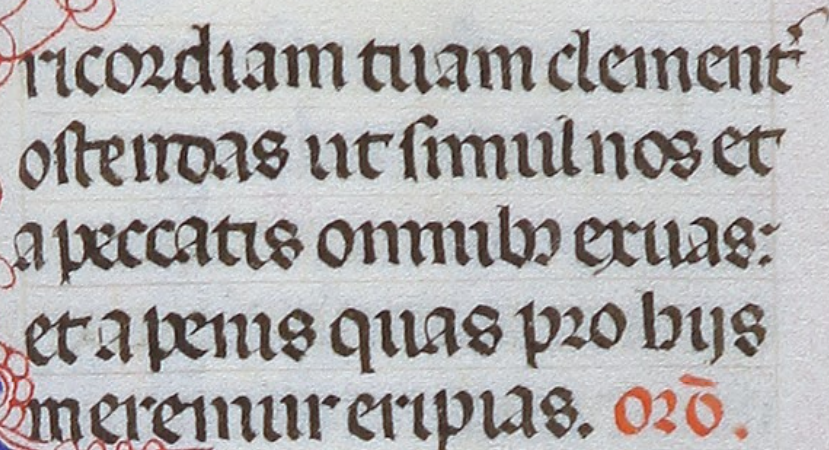 ricordiam tuam clement᾿
ostendas ut simul nos et
a peccatis omnibꝫ exuas:
et a penis quas pro hijs
meremur eripias. orō.